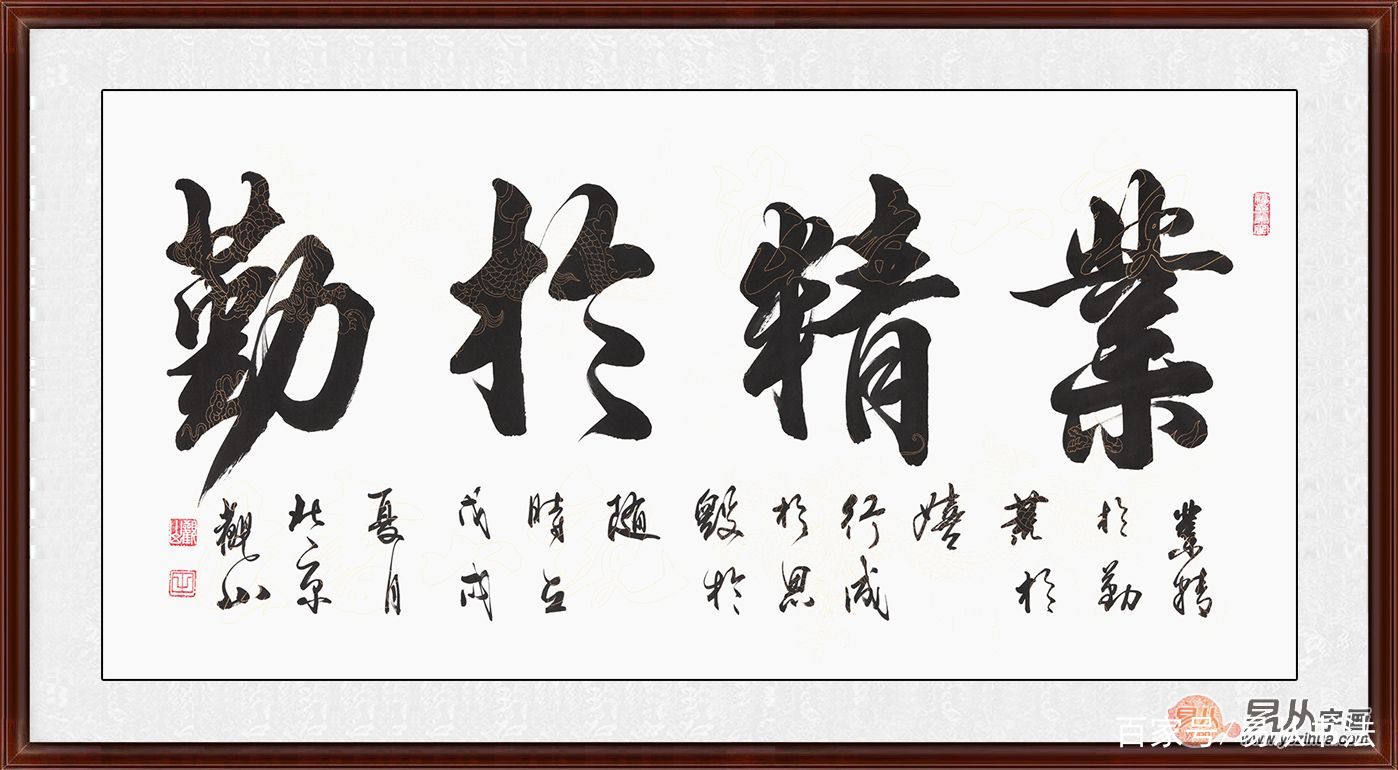 業精於勤
業精
於勤
荒於
嬉
行成
於思
毀於
随
時在
戊戌
夏月
北京
觀山
易从字画
百家号/易从书法